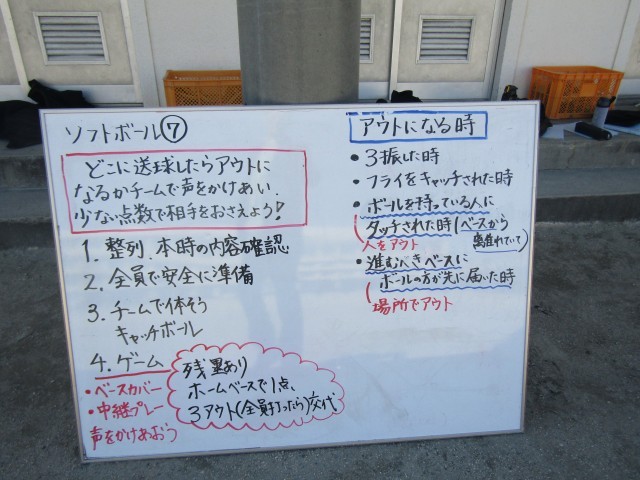 ソフトボール⑦
どこに送球したらアウトに
なるかチームで声をかけあい、
少ない点数で相手をおさえよう!
1. 整列、本時の内容確認
2. 全員で安全に準備
3. チームで体そう
キャッチボール
4. ゲーム
・ベースカバー
・中継プレー
声をかけあおう
残塁あり
ホームベースで1点、
3アウト(全員打ったら)交代
アウトになる時
・3振した時
・フライをキャッチされた時
・ボールを持っている人に
タッチされた時(ベースから
離れていて)
人をアウト
・進むべきベースに
ボールの方が先に届いた時
場所でアウト